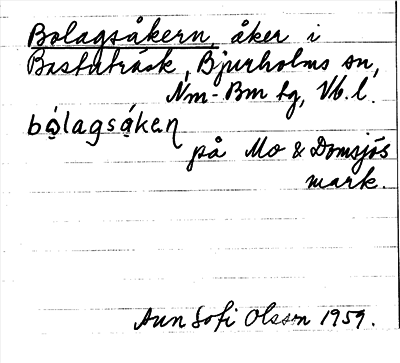 Bolagsåkern, åker i
Bastuträsk, Bjurholms sn,
Nm-Bm tg, Vb.l.
bo̱lagså̱kęṇ
på Mo & Domsjös
mark.
Ann Sofi Olsson 1959.